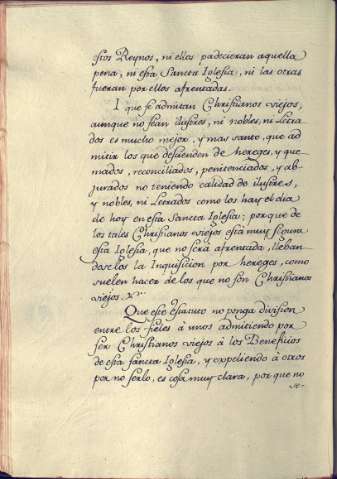 estos Reynos, ni ellos padecieran aquella
pena, ni esta Sancta Iglesia, ni las otras
fueran por ellos afrentadas.
I que se admitan Christianos viejos,
aunque no sean ilustres, ni nobles, ni Letra
dos es mucho mejor, y mas santo, que ad
mitir los que descienden de hereges, y que
mados, reconciliados, penitenciados, y ab-
jurados no teniendo calidad de ilustres,
y nobles, ni Letrados como los hay el dia
de hoy en esta Sancta Iglesia; porque de
los tales Christianos viejos está muy segura
esta Iglesia, que no será afrentada, lleban
doselos la Inquisicion por hereges, como
suelen hacer de los que no son Christianos
viejos.
Que este estatuto no ponga division
entre los fieles á unos admitiendo por
ser Christianos viejos á los Beneficios
de esta Sancta Iglesia, y expeliendo á otros
por no serlo, es cosa muy clara, por que no